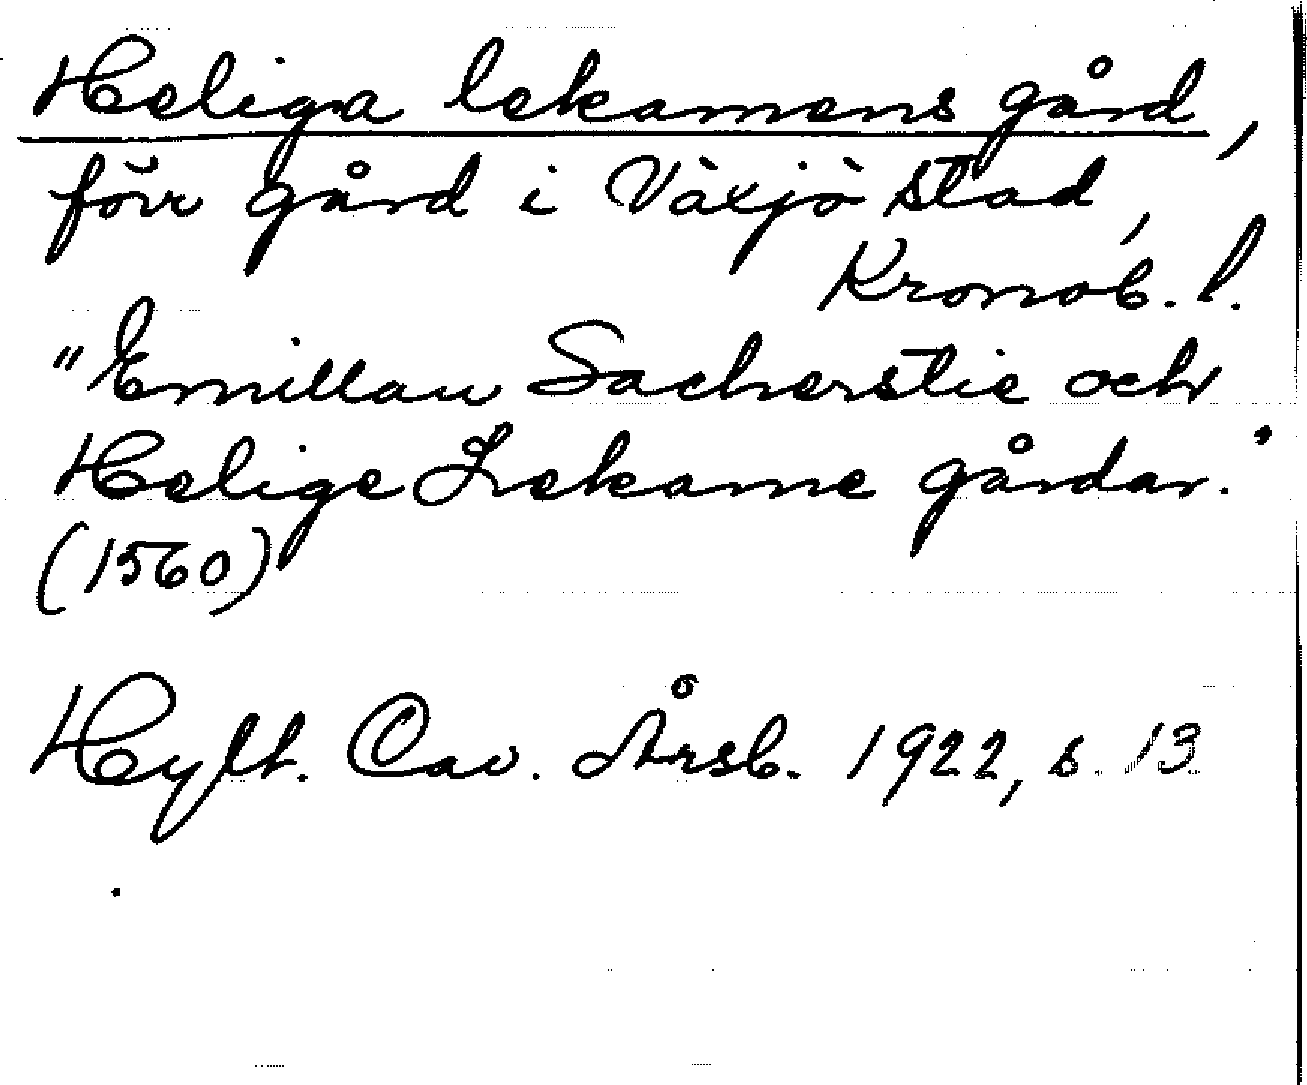 Heliga lekamens gård,
förr gård i Växjö stad,
Kronob. l.
"Emillau Sacherstie och
Helige Lekame gårdar."
(1560)
Hylt. Cav. Årsb. 1922, s. 13